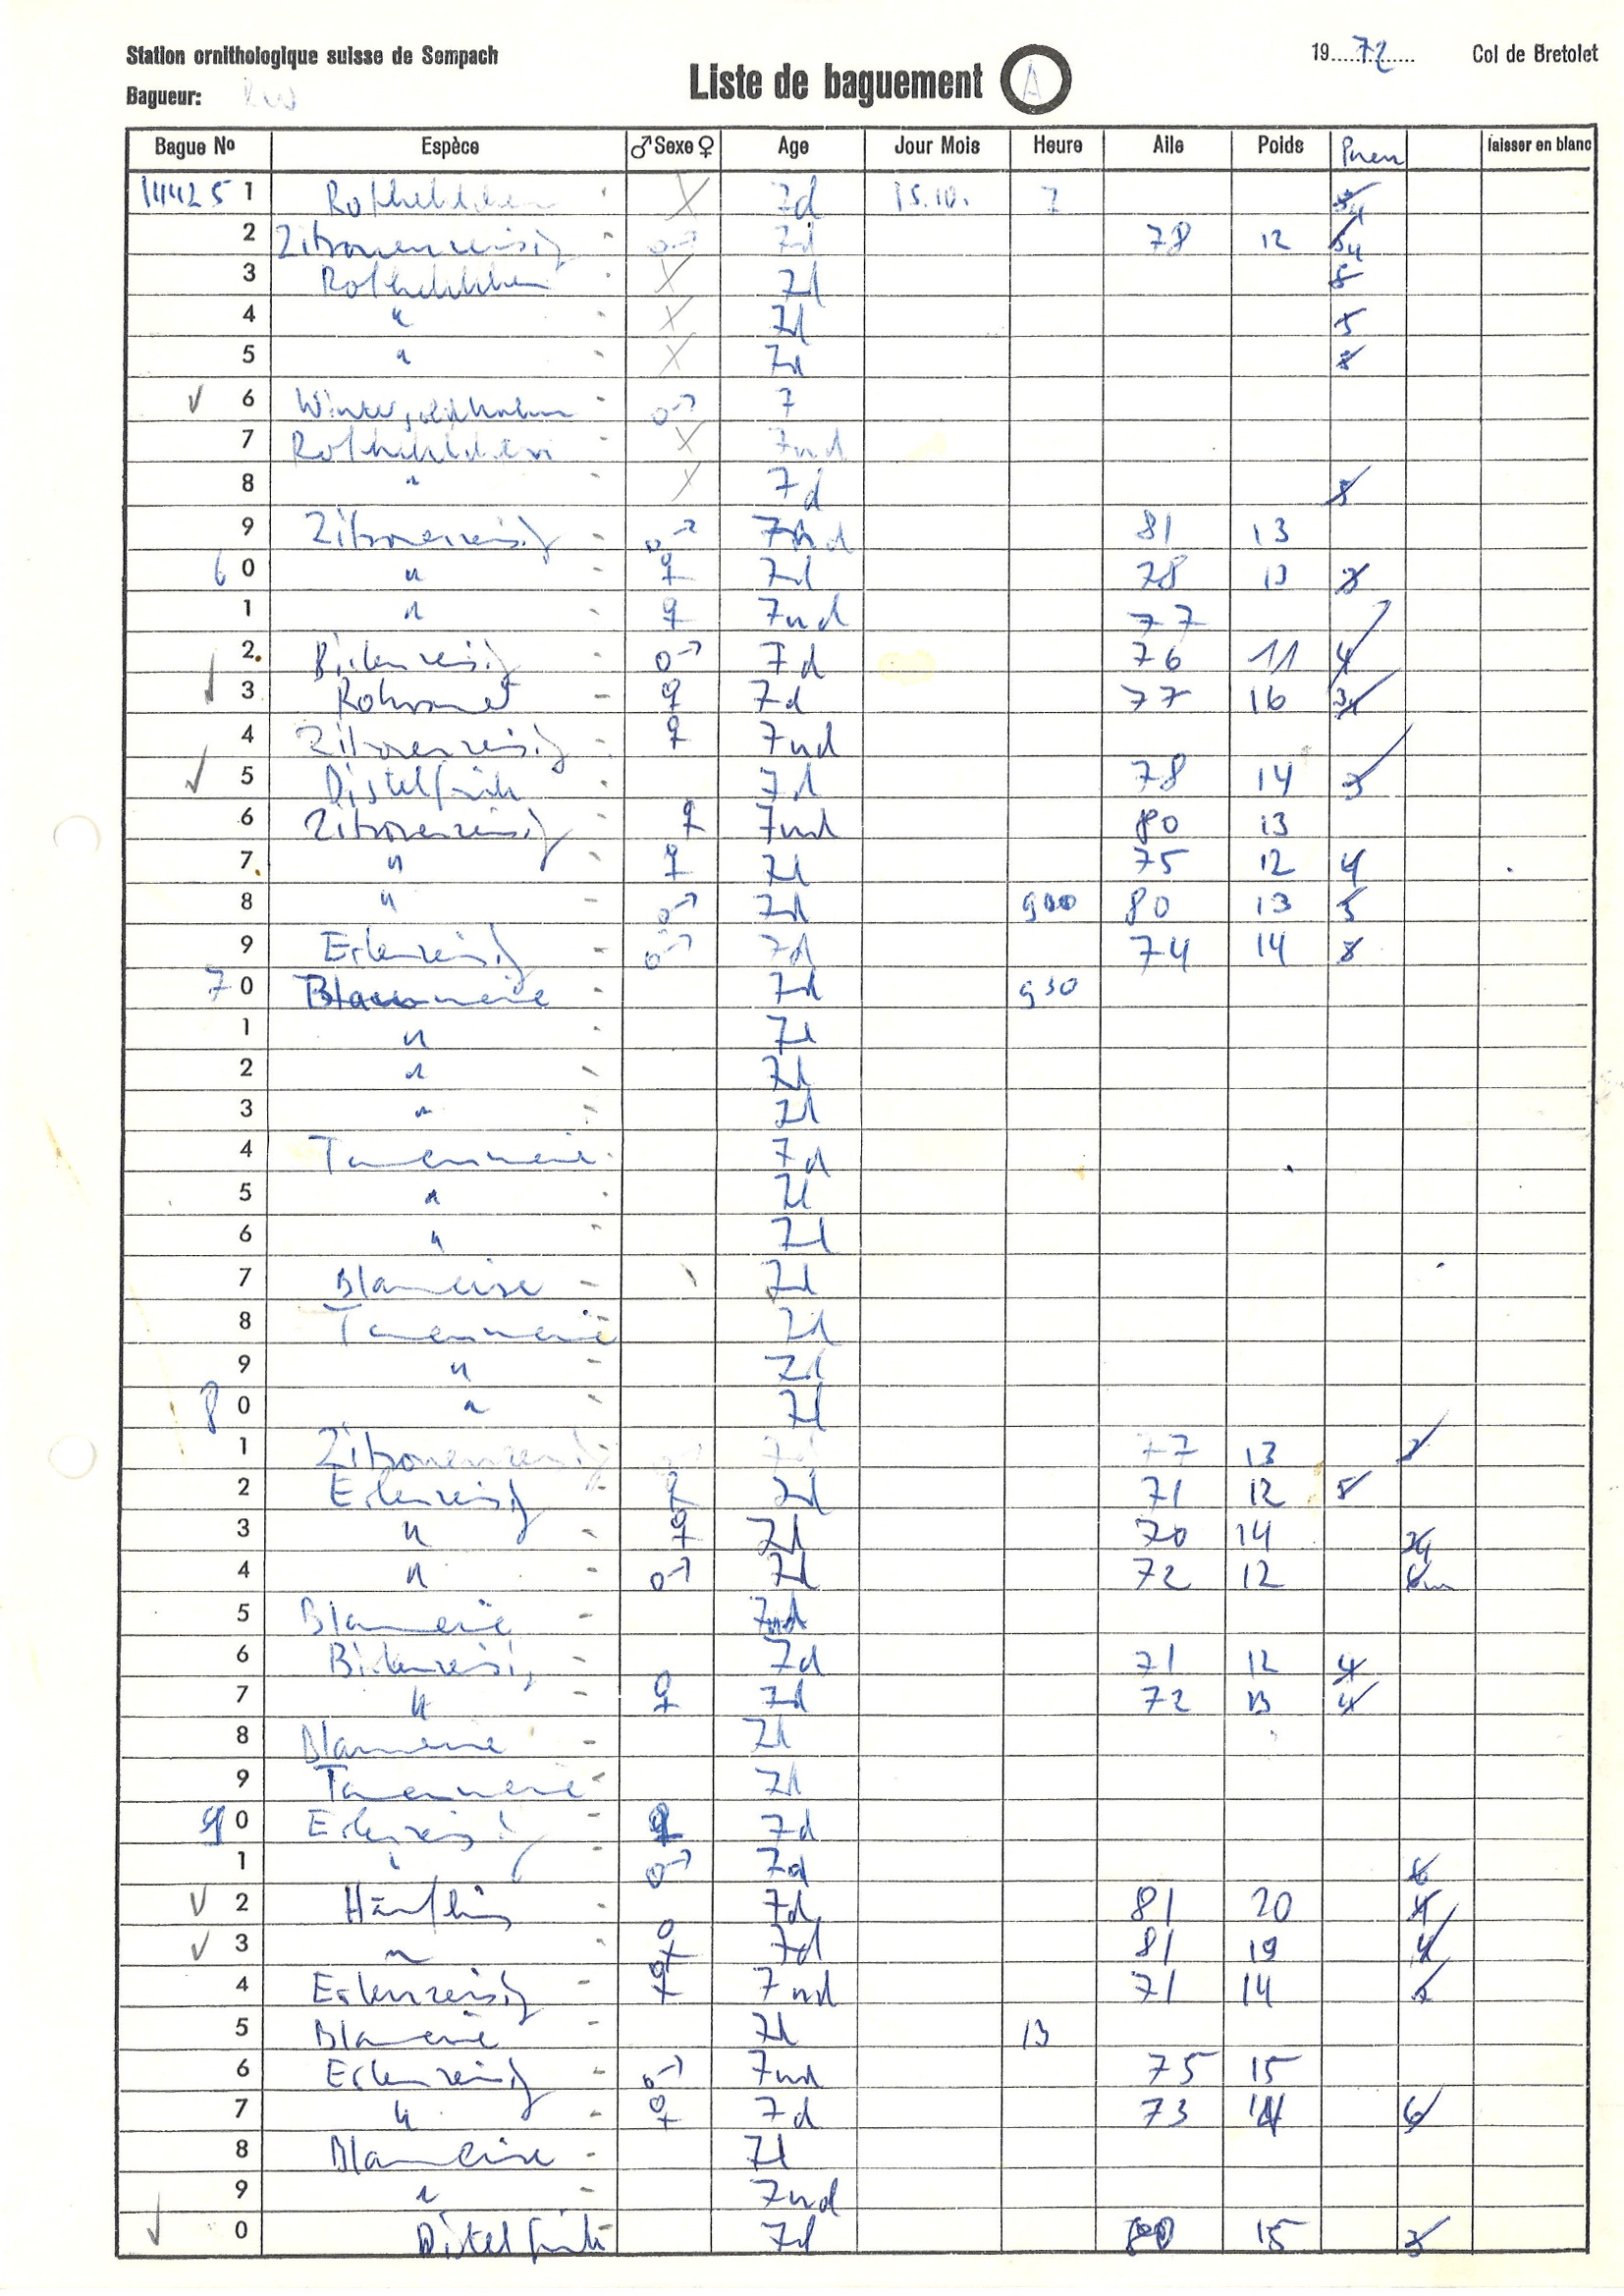 Station ornithologique suisse de Sempach
19 72 Col de Bretolet
Liste de baguement A
Bagueur:
Bague Nº Espèce ♂ Sexe ♀ Age Jour Mois Heure Aile Poids laisser en blanc
111425 1 Rotkehlchen X 7d 15.10. 7
2 Zitronenzeisig ♂ 7d 78 12
3 Rotkehlchen X 7d
4 " X 7d 5
5 " X 7d
✓ 6 Wintergoldhahn ♂ 7
7 Rotkehlchen X 7nd
8 " X 7d
9 Zitronenzeisig ♂ 7nd 81 13
6 0 " ♀ 7d 78 13
1 " ♀ 7nd 77
2 Birkenzeisig ♂ 7d 76 11 4
✓ 3 Rohramer ♀ 7d 77 16
4 Zitronenzeisig ♀ 7nd
✓ 5 Distelfink 7d 78 14 3
6 Zitronenzeisig ♀ 7nd 80 13
7 " ♀ 7d 75 12 4
8 " ♂ 7d 900 80 13 5
9 Erlenzeisig ♂ 7d 74 14
7 0 Blaumeise 7d 930
1 " 7d
2 " 7d
3 " 7d
4 Tannenmeise 7d
5 " 7d
6 " 7d
7 Blaumeise 7d
8 Tannenmeise 7d
9 " 7d
8 0 " 7d
1 Zitronenzeisig 7d 77 13
2 Erlenzeisig ♀ 7d 71 12 5
3 " ♀ 7d 70 14
4 " ♂ 7d 72 12
5 Blaumeise 7nd
6 Birkenzeisig 7d 71 12 4
7 " ♀ 7d 72 13 4
8 Blaumeise 7d
9 Tannenmeise 7d
9 0 Erlenzeisig ♀ 7d
1 " ♂ 7d 6
✓ 2 Hänfling 7d 81 20 4
✓ 3 " ♀ 7d 81 19 4
4 Erlenzeisig ♀ 7nd 71 14
5 Blaumeise 7d 13
6 Erlenzeisig ♂ 7nd 75 15
7 " ♀ 7d 73 14 6
8 Blaumeise 7d
9 " 7nd
✓ 0 Distelfink 7d 80 15 3